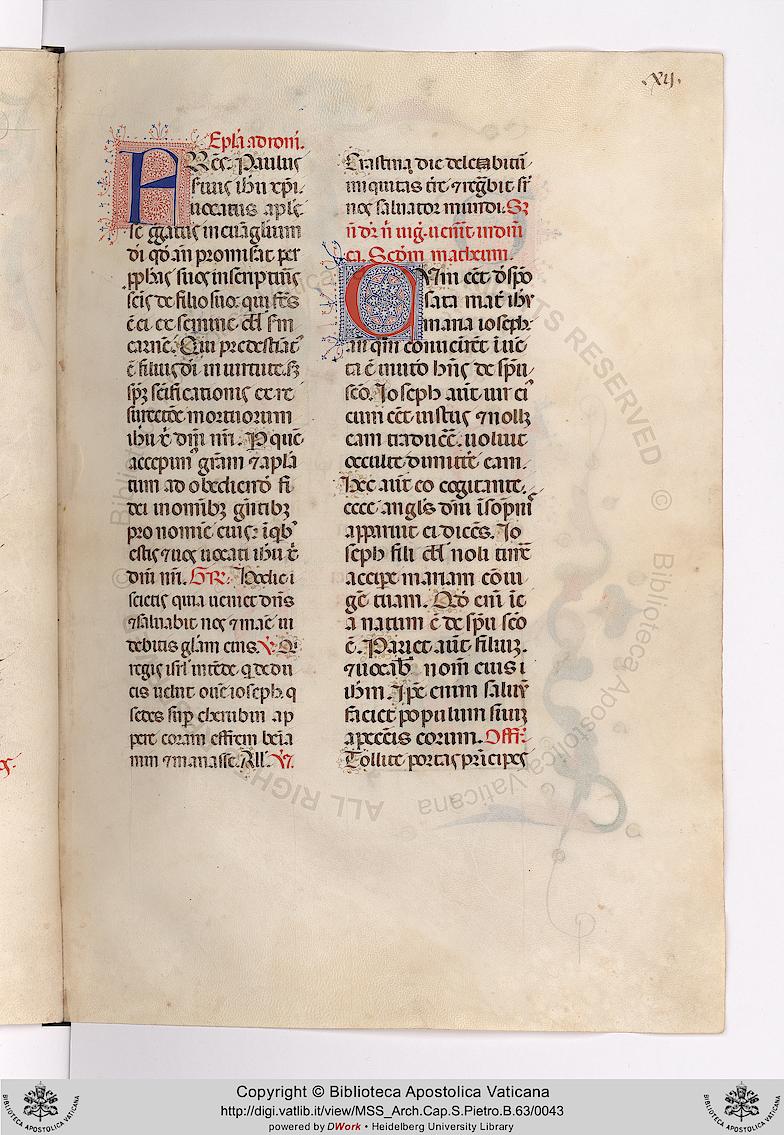 .xij.
Epła ad romͣ.
PAulus
seruus ihu xp̄i.
uocatus aplꝰ
segregatus in euangelium
di qd̄ an̄ promiserat per
ꝓphas suos in scripturis
scīs de filio suo: qui fcūs
ē ei ex semine dd̄ scd̄m
carnē. Qui predestinatꝰ
ē filius di in uirtute. sc̄dm
spm̄ scīficationis ex re
surrectōe mortuorum
ihu x̄ dn̄i nr̄i. P quē
accepimꝰ grām ⁊ apla
tum ad obediendū fi
dei in omnibꝫ gentibꝫ
pro nomine eius: ī qbꝰ
estis ⁊ uos uocati ihu x̄
dn̄i nr̄i. GR̄. Hodie
scietis quia ueniet dn̄s
⁊ saluabit nos ⁊ mane ui
debitis glām eius. V̄. Q
regis isrl̄ intēde. q dedu
cis uelut ouē ioseph. q
sedes sup̄ cherubin ap
pare coram effrem benia
min ⁊ manasse. All̄a. V̄.
Crastina die delebitur
iniquitas terre ⁊ regnabit sr̄
nos saluator mundi. Sꝫ
n̄ dr̄ n̄ uig. uenerit in dn̄i
ca. Scd̄m matheum.
CUm eēt despō
sata mater ihu
maria ioseph:
an̄ qm̄ conuenirent īuē
ta ē in utero hn̄s de spū
scō. Ioseph aūt uir eiꝰ
cum eēt iustus ⁊ nollꝫ
eam traducē. uoluit
occulte dimittē eam.
Hec aūt eo cogitante.
ecce angls̄ dn̄i ī sōpnis
apparuit ei dicēs. Io
seph fili dd̄ noli timere
accipe mariam cōiu
gē tuam. Qd̄ enī ī e
a natum ē de spū scō
ē. Pariet aūt filium.
⁊ uocabis nom̄ eius
ihm̄. Ip̄e enim saluum
faciet populum suum
a peccatis eorum. Offr̄.
Tollite portas principes
Copyright © Biblioteca Apostolica Vaticana
http://digi.vatlib.it/view/MSS_Arch.Cap.S.Pietro.B.63/0043
powered by DWork • Heidelberg University Library
BIBLIOTECA APOSTOLICA VATICANA
BIBLIOTECA APOSTOLICA VATICANA
ALL RIGHTS RESERVED © Biblioteca Apostolica Vaticana